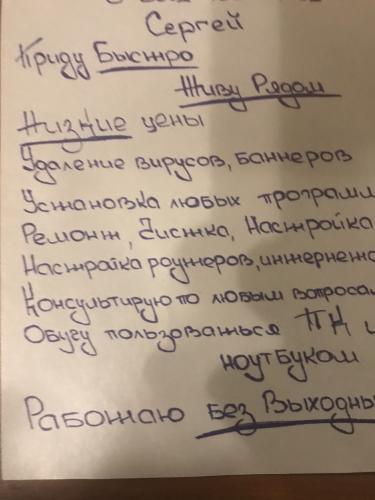 Сергей
Приду Быстро
Живу Рядом
Низкие цены
Удаление вирусов, баннеров
Установка любых программ
Ремонт, Чистка, Настройка
Настройка роутеров, интернета
Консультирую по любым вопросам
Обучу пользоваться ПК и
ноутбуком
Работаю без Выходны